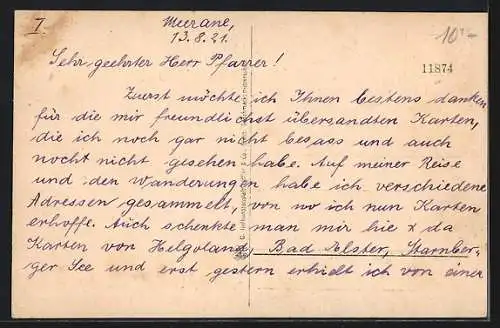 I
Meerane,
13.8.21.
10.-
Sehr geehrter Herr Pfarrer!
11874
Zuerst möchte ich Ihnen bestens danken
für die mir freundlichst übersandten Karten,
die ich noch gar nicht besass und auch
nocht nicht gesehen habe. Auf meiner Reise
und den Wanderungen habe ich verschiedene
Adressen gesammelt, von wo ich nun Karten
erhoffe. Auch schenkte man mir hie & da
Karten von Helgoland, Bad Elster, Starnber-
ger See und erst gestern erhielt ich von einer